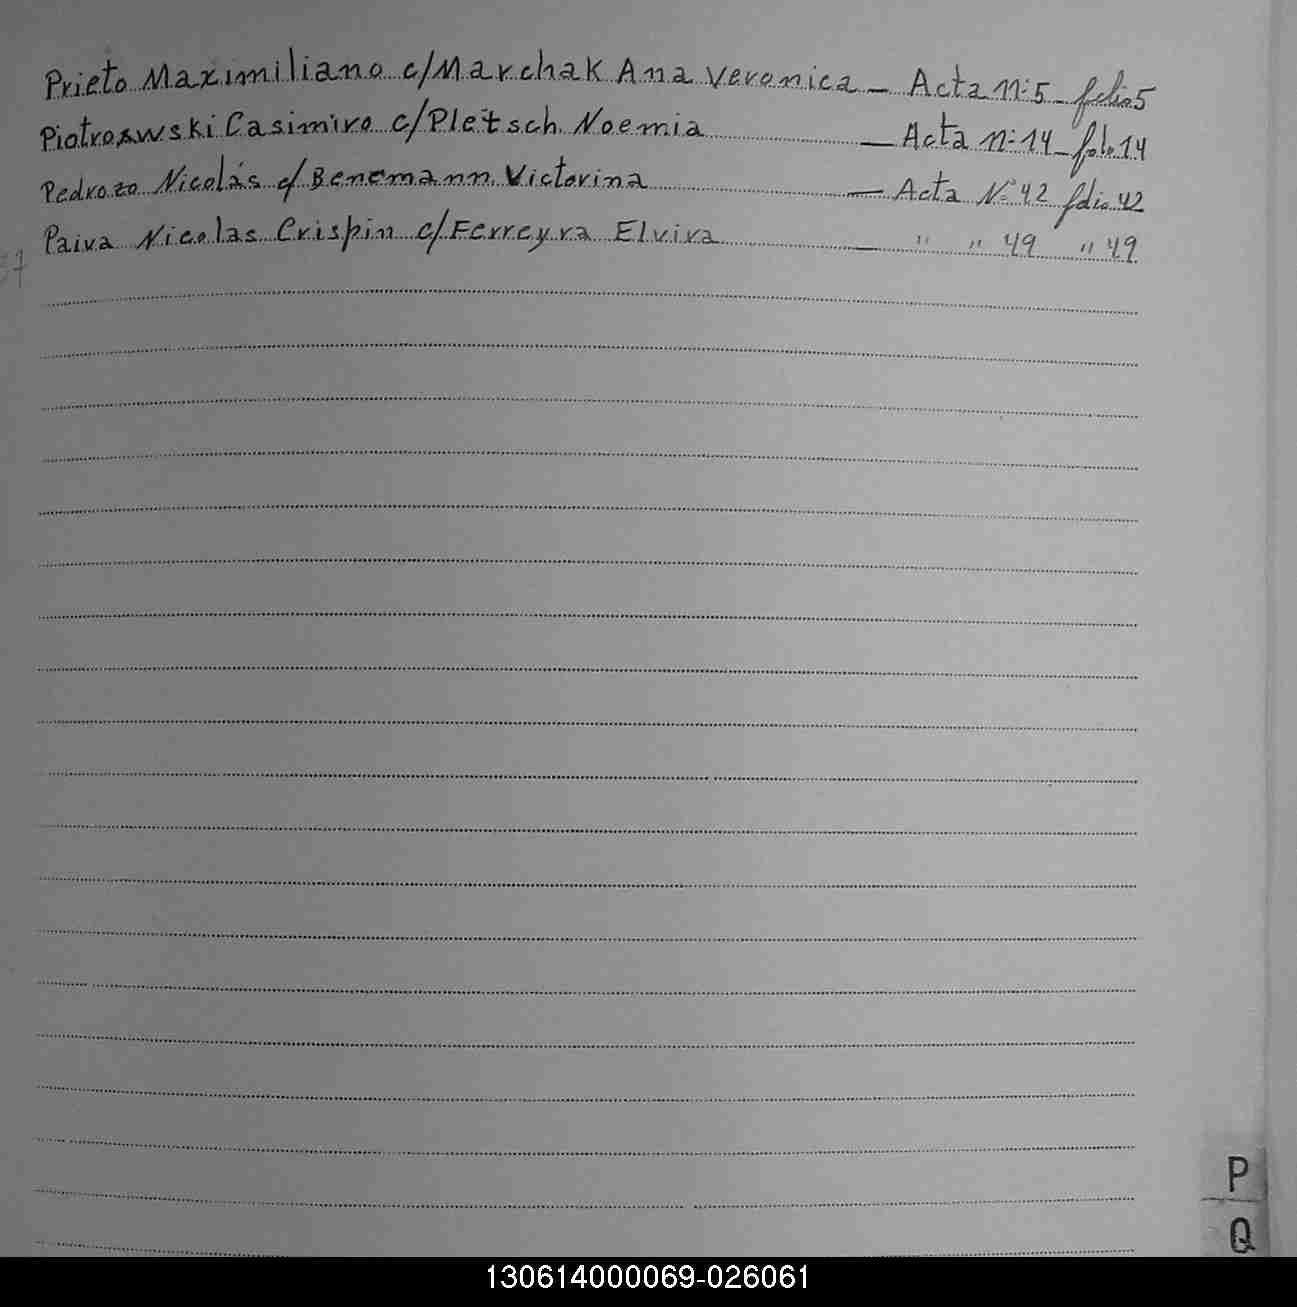 Prieto Maximiliano c/Marchak Ana Veronica - Acta nº 5 - folio 5
Piotroswski Casimiro c/Pletsch Noemia - Acta nº 14 - folio 14
Pedrozo Nicolás c/ Benemann Victorina - Acta Nº 42 folio 42
Paiva Nicolas Crispin c/Ferreyra Elvira - " " 49 " 49
P
Q
130614000069-026061